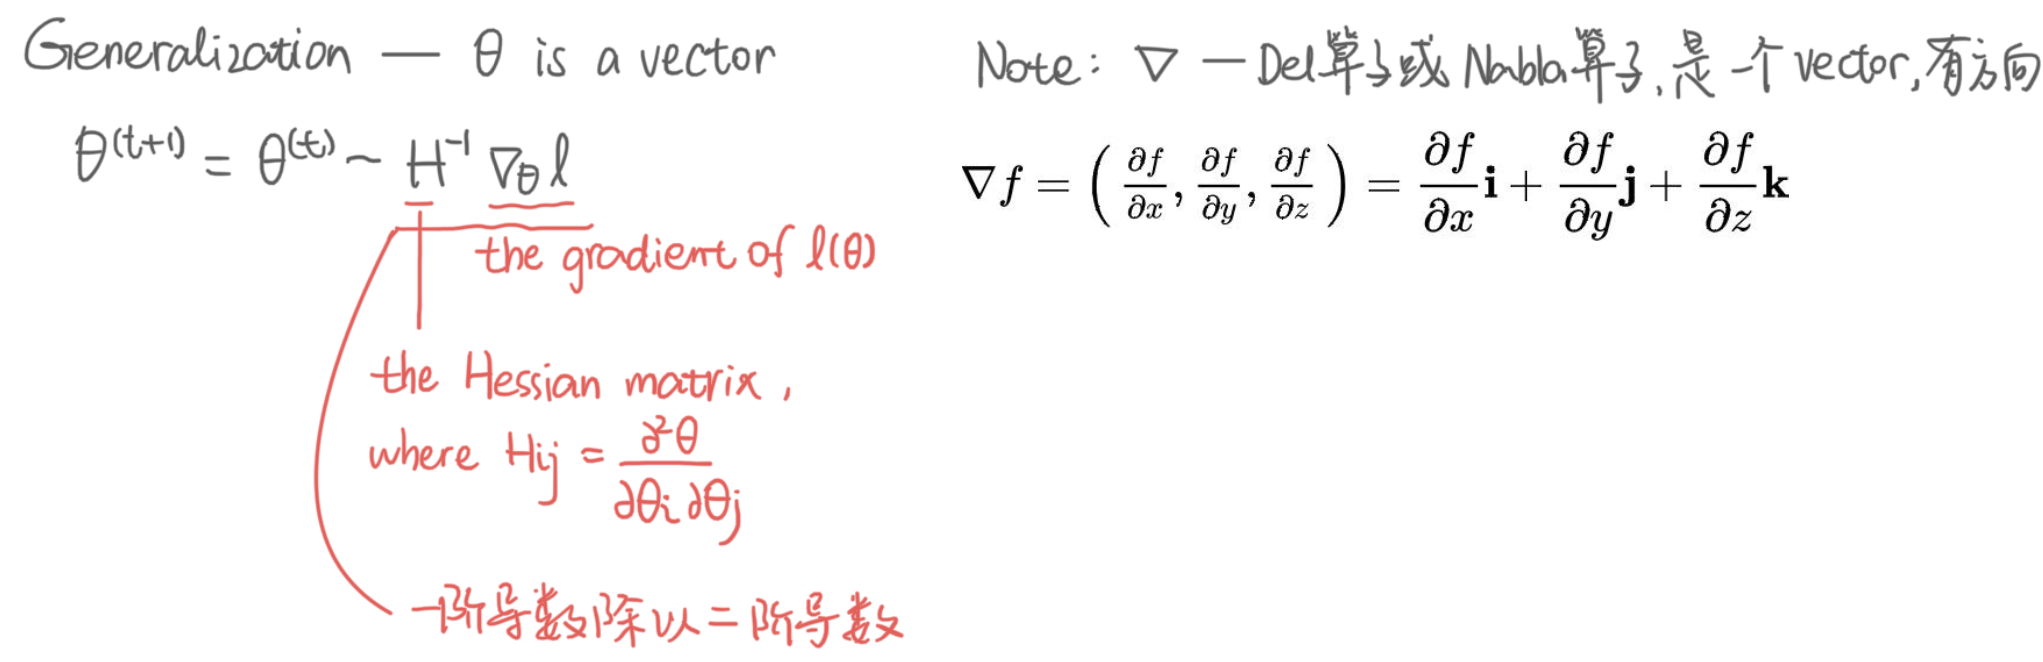 Generalization — θ is a vector
θ^(t+1) = θ^(t) - H^-1 ∇_θ l
the gradient of l(θ)
the Hessian matrix,
where Hij = ∂²θ / ∂θi ∂θj
一阶导数除以二阶导数
Note: ∇ — Del算子或 Nabla算子,是一个vector,有方向
∇f = ( ∂f/∂x, ∂f/∂y, ∂f/∂z ) = ∂f/∂x i + ∂f/∂y j + ∂f/∂z k